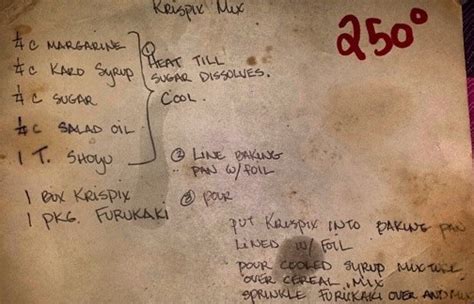 KRISPIX MIX
250°
¼ C MARGARINE
¼ C KARO SYRUP
¼ C SUGAR
¼ C SALAD OIL
1 T. SHOYU
① HEAT TILL
SUGAR DISSOLVES.
COOL.
② LINE BAKING
PAN W/FOIL
1 BOX KRISPIX
1 PKG. FURUKAKI
③ POUR
PUT KRISPIX INTO BAKING PAN
LINED W/ FOIL
POUR COOLED SYRUP MIXTURE
OVER CEREAL MIX
SPRINKLE FURUKAKI OVER AND MIX